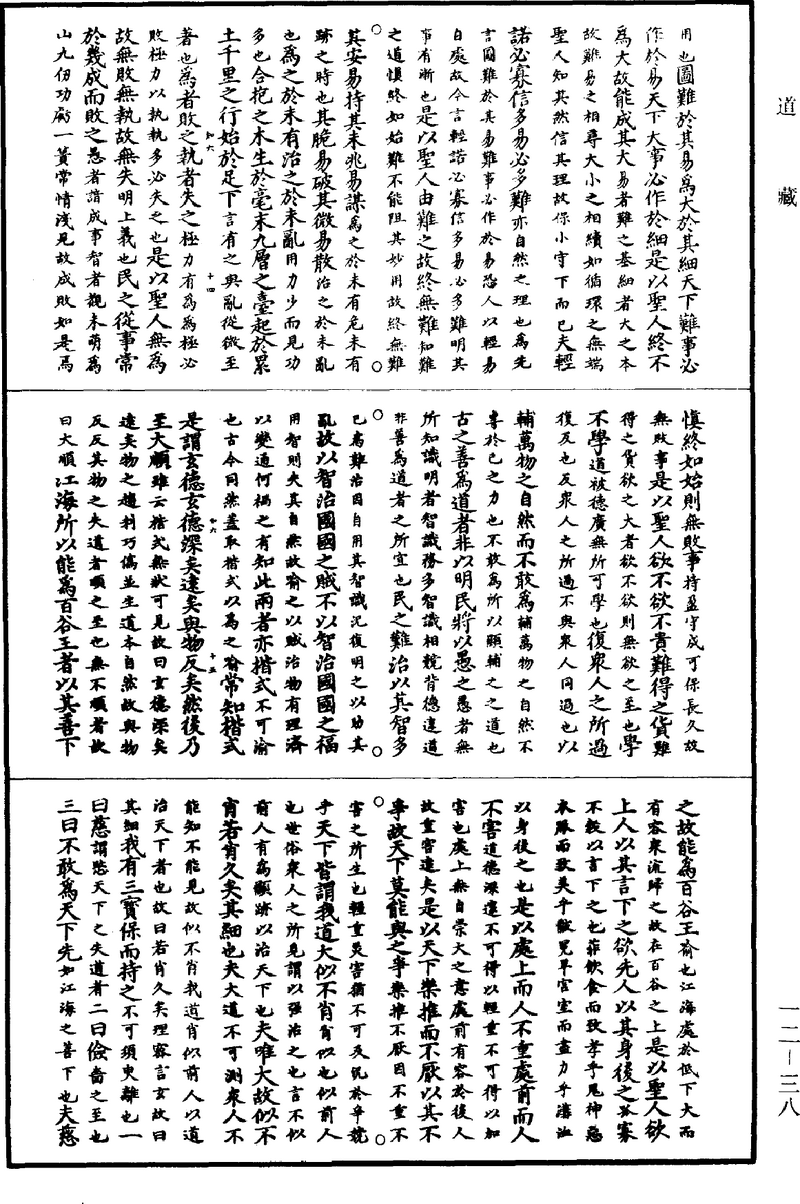 道藏
用也圖難於其易為大於其細天下難事必
作於易天下大事必作於細是以聖人終不
為大故能成其大易者難之基細者大之本
故難易之相尋大小之相續如循環之無端
聖人知其然信其理故保小守下而已夫輕
諾必寡信多易必多難亦自然之理也為先
言圖難於其易難事必作於易恐人以輕易
自處故今言輕諾必寡信多易必多難明其
事有漸也是以聖人由難之故終無難知難
之道慎終如始難不能阻其妙用故終無難
其安易持其未兆易謀為之於未有危未有
跡之時也其脆易破其微易散治之於未亂
也為之於未有治之於未亂用力少而見功
多也合抱之木生於毫末九層之臺起於累
土千里之行始於足下言有之與亂從微至
著也為者敗之執者失之極力有為為極必
敗極力以執執多必失之也是以聖人無為
故無敗無執故無失明上義也民之從事常
於幾成而敗之愚者諳成事智者觀未萌為
山九仞功虧一簣常情淺見故成敗如是焉
慎終如始則無敗事持盈守成可保長久故
無敗事是以聖人欲不欲不貴難得之貨難
得之貨欲之大者欲不欲則無欲之至也學
不學道被德廣無所可學也復衆人之所過
復反也反衆人之所過不與衆人同過也以
輔萬物之自然而不敢為輔萬物之自然不
專於己之力也不敢為所以順輔之之道也
古之善為道者非以明民將以愚之愚者無
所知識明者智識務多智識相競背德違道
非善為道者之所宜也民之難治以其智多
已為難治因自用其智識況復明之以助其
亂故以智治國國之賊不以智治國國之福
用智則失其自然故喻之以賊治物有理濟
以變通何禍之有知此兩者亦楷式不可渝
也古今同然蓋取楷式以為之喻常知楷式
是謂玄德玄德深矣遠矣與物反矣然後乃
至大順雖云楷式無狀可見故曰玄德深矣
遠矣物之趨利巧偽並生道本自然故與物
反反其物之失道者順之至也無不順者故
曰大順江海所以能為百谷王者以其善下
之故能為百谷王喻也江海處於低下大而
有容衆流歸之故在百谷之上是以聖人欲
上人以其言下之欲先人以其身後之孤寡
不穀以言下之也菲飲食而致孝乎鬼神惡
衣服而致美乎黻冕卑宮室而盡力乎溝洫
以身後之也是以處上而人不重處前而人
不害道德深遠不可得以輕重不可得以加
害也處上無自崇大之意處前有容於後人
故重害遠矣是以天下樂推而不厭以其不
爭故天下莫能與之爭樂推不厭因不重不
害之所生也輕重災害猶不可及况於爭競
乎天下皆謂我道大似不肖肖似也似前人
也世俗衆人之所見謂以强治之也言不似
前人有為顯跡以治天下也夫唯大故似不
肖若肖久矣其細也夫大道不可測衆人不
能知不能見故似不肖我道肖似前人以道
治天下者也故曰若肖久矣理寐言玄故曰
其細我有三寶保而持之不可須臾離也一
曰慈謂愍天下之失道者二曰儉嗇之至也
三曰不敢為天下先如江海之善下也夫慈
知六 十四
知六 十五
一二—三八